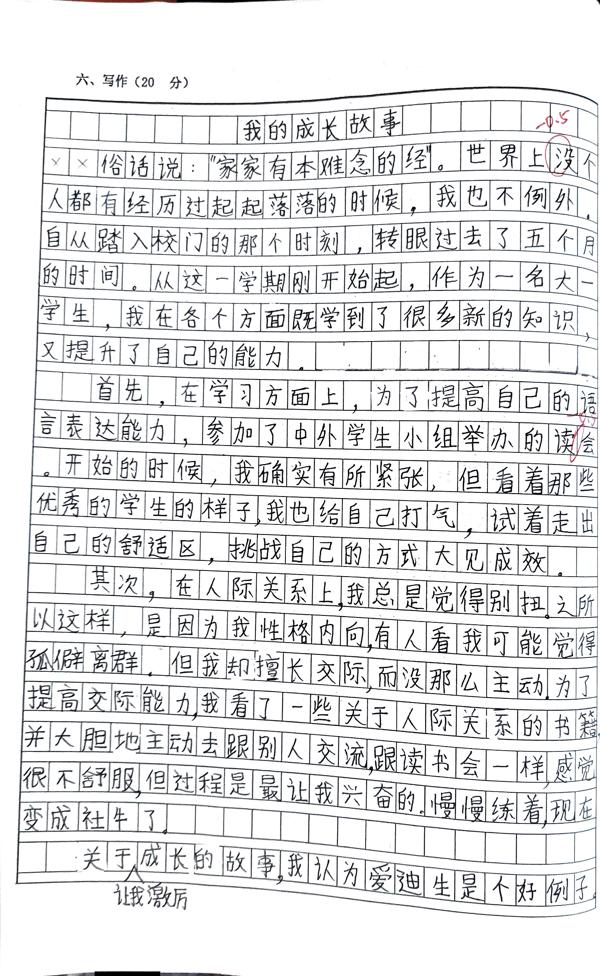 六、写作(20 分)
我的成长故事
-0.5
××俗话说:"家家有本难念的经"。世界上没个
人都有经历过起起落落的时候,我也不例外.
自从踏入校门的那个时刻,转眼过去了五个月
的时间。从这一学期刚开始起,作为一名大一
学生,我在各个方面既学到了很多新的知识,
又提升了自己的能力.
首先,在学习方面上,为了提高自己的语
言表达能力,参加了中外学生小组举办的读会
。开始的时候,我确实有所紧张,但看着那些
优秀的学生的样子,我也给自己打气,试着走出
自己的舒适区,挑战自己的方式大见成效.
其次,在人际关系上,我总是觉得别扭.之所
以这样,是因为我性格内向,有人看我可能觉得
孤僻离群.但我却擅长交际,而没那么主动.为了
提高交际能力,我看了一些关于人际关系的书籍.
并大胆地主动去跟别人交流,跟读书会一样,感觉
很不舒服,但过程是最让我兴奋的.慢慢练着,现在
变成社牛了.
关于成长的故事,我认为爱迪生是个好例子.
让我激厉